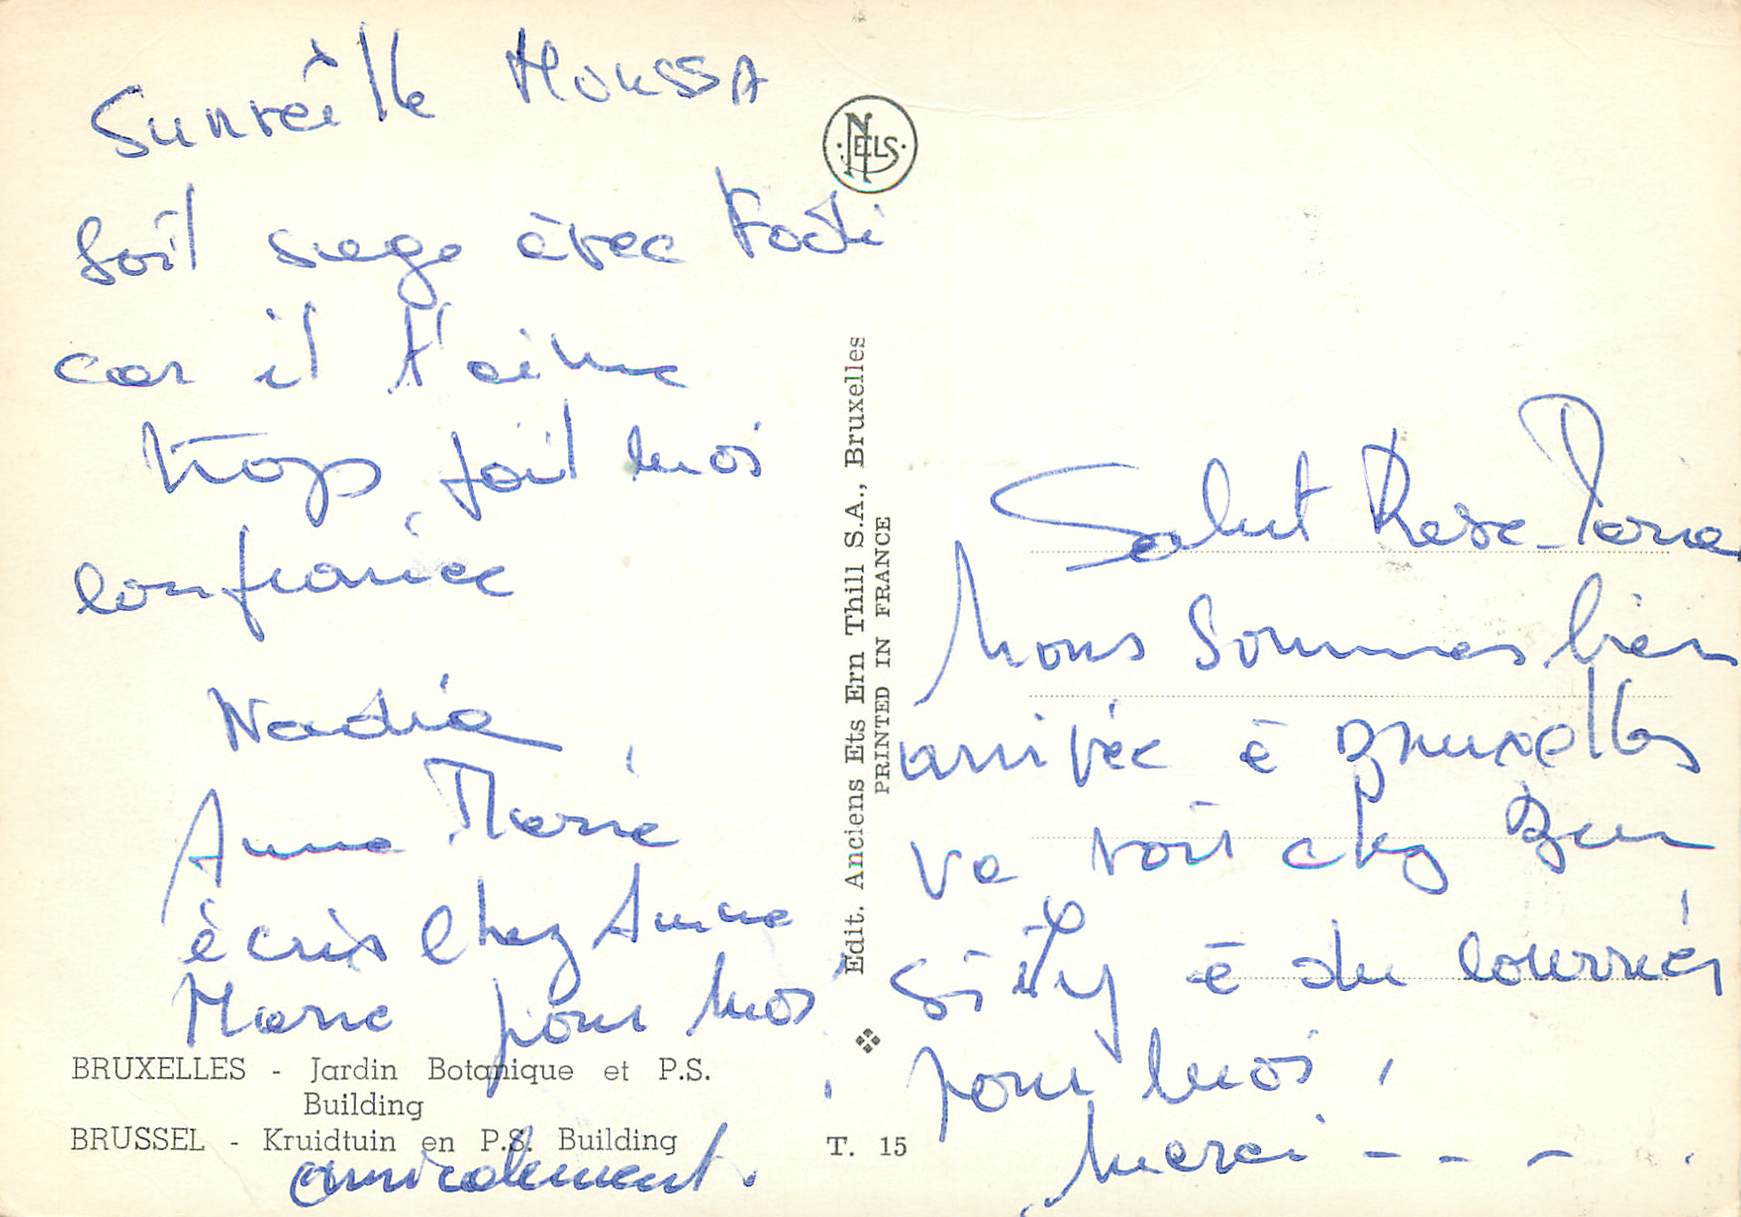 Surveille MOUSSA
soit sage avec Fodé
car il t'aime
trop fait moi
confiance
Nadia
Anna Marie
écris chez Anna
Marie pour moi
BRUXELLES - Jardin Botanique et P.S.
Building
BRUSSEL - Kruidtuin en P.S. Building
amicalement.
NELS
Edit. Anciens Ets Ern Thill S.A., Bruxelles
PRINTED IN FRANCE
T. 15
Salut Rose-Maria
Nous sommes bien
arrivée à Bruxelles
va voir chez
si il y à du courrier
pour moi,
Merci - - - .